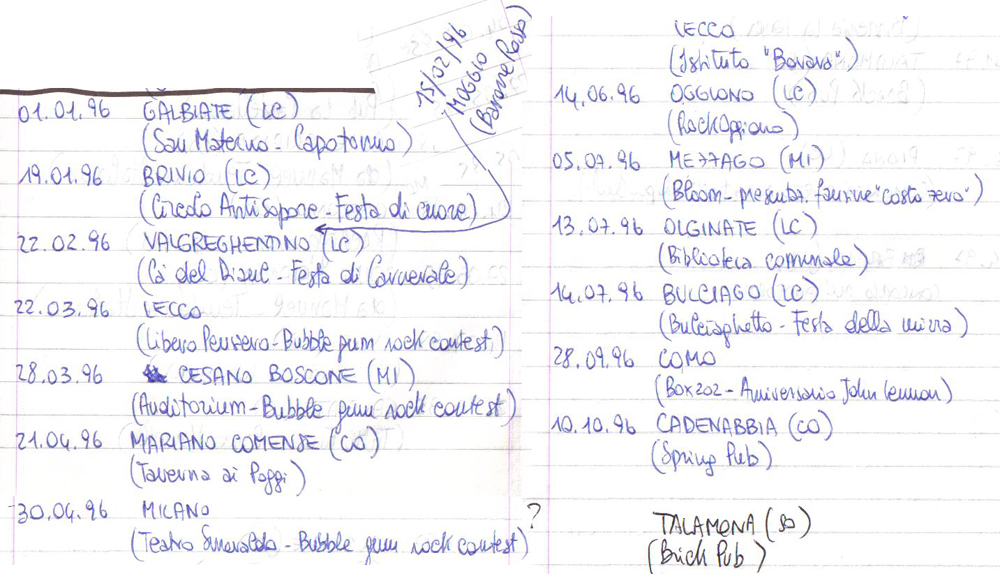 15/02/96
MOGGIO
(Barone Rosso)
01.01.96 GALBIATE (LC)
(San Materno - Capotorno)
19.01.96 BRIVIO (LC)
(Circolo Antisopore - Festa di cuore)
22.02.96 VALGREGHENTINO (LC)
(Cà del Diaul - Festa di Carnevale)
22.03.96 LECCO
(Libero Pensiero - Bubble gum rock contest)
28.03.96 CESANO BOSCONE (MI)
(Auditorium - Bubble gum rock contest)
21.04.96 MARIANO COMENSE (CO)
(Taverna ai Poggi)
30.04.96 MILANO
(Teatro - Bubble gum rock contest)
?
LECCO
(Istituto "Bovara")
14.06.96 OGGIONO (LC)
(RockOggiono)
05.07.96 MEZZAGO (MI)
(Bloom - presentaz. fanzine "costo zero")
13.07.96 OLGINATE (LC)
(Biblioteca comunale)
14.07.96 BULCIAGO (LC)
(Bulciaghetto - Festa della birra)
28.09.96 COMO
(Box202 - Aniversario John Lennon)
10.10.96 CADENABBIA (CO)
(Spring Pub)
TALAMONA (SO)
(Brick Pub)